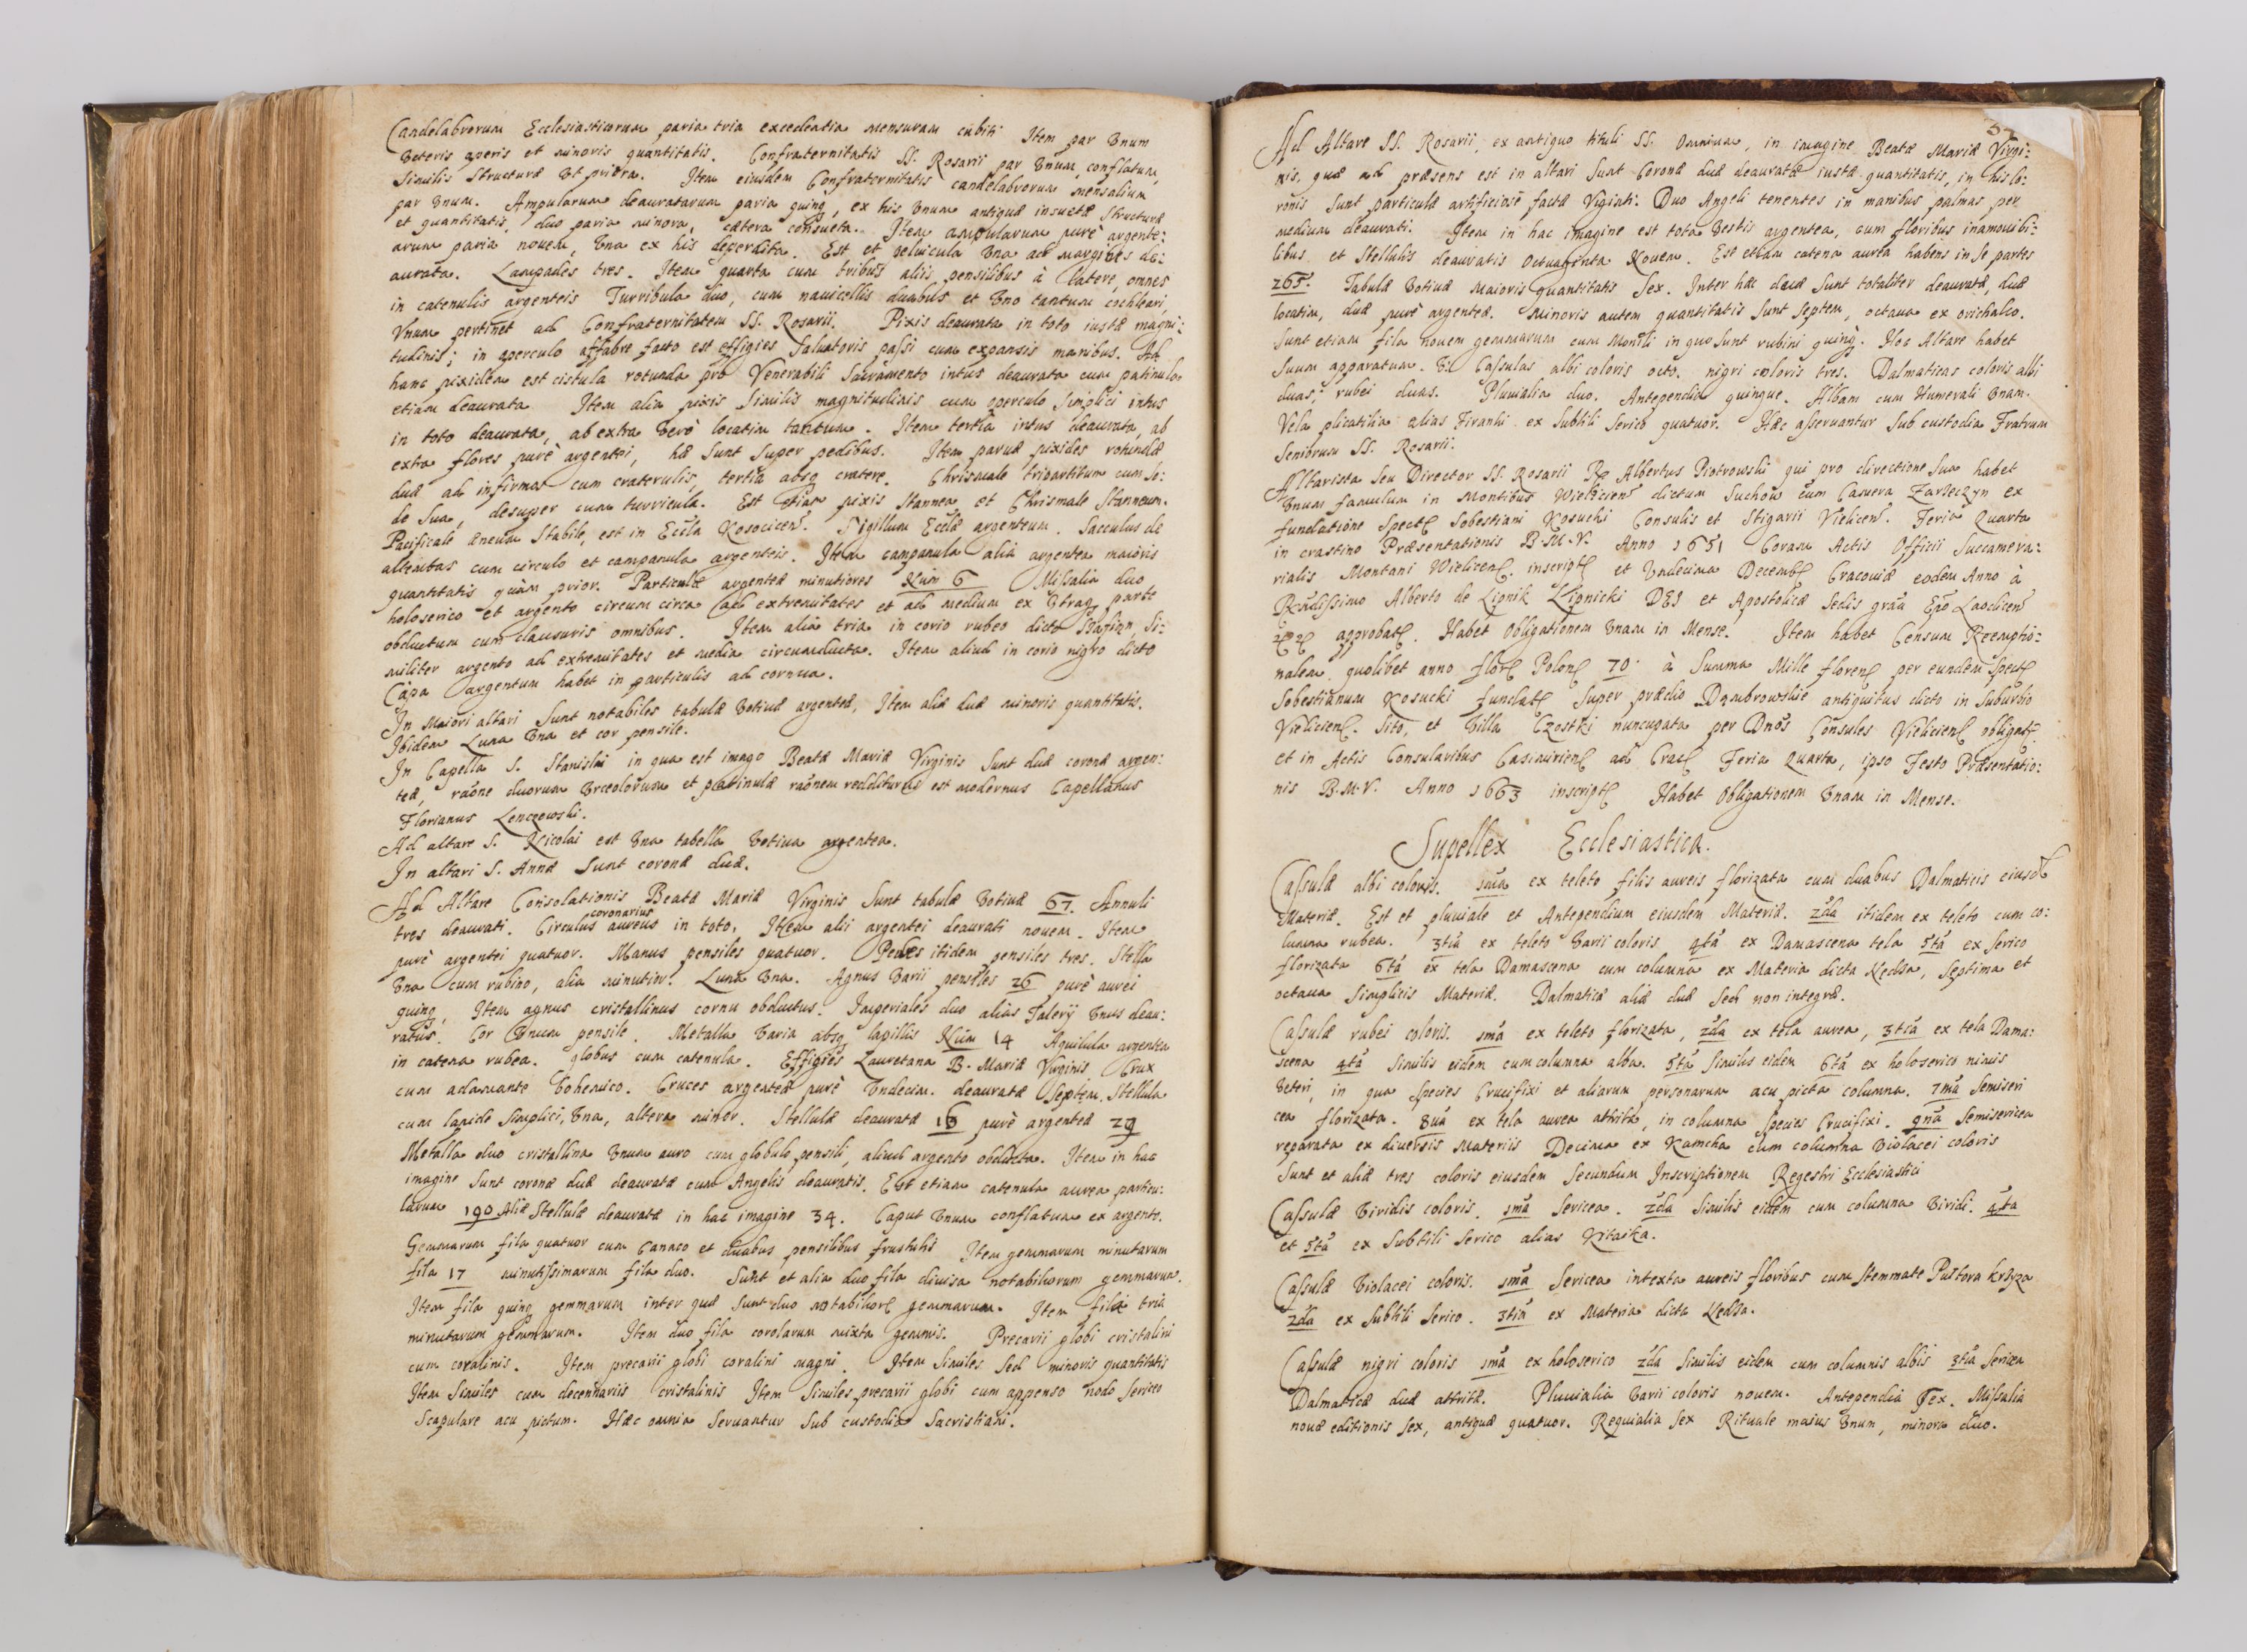 Candelabrorum Ecclesiasticorum paria tria excedentia mensuram cubiti Item par vnum
veteris operis et minoris quantitatis. Confraternitatis SS. Rosarii par vnum, conflatum,
similis structuræ vt priora. Item eiusdem Confraternitatis candelabrorum mensalium
par vnum. Ampularum deauratarum paria quinq, ex his vnum antiquæ insuetæ structuræ
et quantitatis, duo paria minora, cætera consueta. Item ampularum purè argente:
arum paria nouem, vna ex his deperdita. Est et peluicula vna ad margines de:
aurata. Lampades tres. Item quarta cum tribus aliis pensilibus à latere, omnes
in catenulis argenteis Turribula duo, cum nauicellis duabus et vno tantum cochleari,
Vnum pertinet ad Confraternitatem SS. Rosarii. Pixis deaurata in toto iustæ magni:
tudinis; in operculo affabre facto est effigies Saluatoris passi cum expansis manibus. Ad
hanc pixidem est cistula rotunda pro Venerabili Sacramento intus deaurata cum patinula
etiam deaurata Item alia pixis similis magnitudinis cum operculo simplici intus
in toto deaurata, ab extra verò locatim tantum. Item tertia intus deaurata, ab
extra flores purè argentei, hæ sunt super pedibus. Item paruæ pixides rotundæ
duæ ad infirmos cum craterulis, tertia absq cratere. Chrismale tripartitum cum se:
de sua, desuper cum turricula. Est etiam pixis stannea et Chrismale stanneum.
Pacificale æneum stabile, est in Eccla Kosocicen. Sigillum Eccle argenteum. Sacculus de
altembas cum circulo et campanula argenteis. Item campanula alia argentea maioris
quantitatis quàm prior. Particulæ argenteæ minutiores Num 6 Missalia duo
holoserico et argento circum circa ad extremitates et ad medium ex vtraq parte
obductum cum clausuris omnibus. Item alia tria in corio rubeo dicto Szafian, si:
militer argento ad extremitates et media circumducta. Item aliud in corio nigro dicto
Capa argentum habet in particulis ad cornua.
In Maiori altari sunt notabiles tabulæ votiuæ argenteæ, Item aliæ duæ minoris quantitatis.
Ibidem Luna vna et cor pensile.
In Capella S. Stanislai in qua est imago Beatæ Mariæ Virginis sunt duæ coronæ argen:
teæ, raone duorum vrceolorum et patinulæ raonem redditurus est modernus Capellanus
Florianus Lenczewski.
Ad altare S. Nicolai est vna tabella votiua argentea.
In altari S. Annæ sunt coronæ duæ.
Ad Altare Consolationis Beatæ Mariæ Virginis sunt tabulæ votiuæ 67. Annuli
coronarius
tres deaurati. Circulus aureus in toto, Item alii argentei deaurati nouem. Item
purè argentei quatuor. Manus pensiles quatuor. Pedes itidem pensiles tres. Stella
vna cum rubino, alia minutior. Luna vna. Agnus varii pensiles 26 purè aurei
quinq, Item agnus cristallinus cornu obductus. Imperiales duo alias Talery vnus deau:
ratus. Cor vnum pensile. Metalla varia absq lapillis Num 14 Aquilula argentea
in catena rubea. globus cum catenula. Effigies Lauretana B. Mariæ Virginis Crux
cum adamante bohemico. Cruces argenteæ purè vndecim. deauratæ septem. Stellula
cum lapide simplici, vna, altera minor. Stellulæ deauratæ 16 purè argenteæ 29
Metalla duo cristallina vnum auro cum globulo pensili, aliud argento obducta. Item in hac
imagine sunt coronæ duæ deauratæ cum Angelis deauratis. Est etiam catenula aurea particu:
larum 190 Aliæ Stellulæ deauratæ in hac imagine 34. Caput vnum conflatum ex argento.
Gemmarum fila quatuor cum Canaco et duabus pensilibus frustulis Item gemmarum minutarum
fila 17 minutissimarum fila duo. Sunt et alia duo fila diuisa notabiliorum gemmarum.
Item fila quinq gemmarum inter quæ sunt duo notabilior gemmarum. Item fila tria
minutarum gemmarum. Item duo fila corolarum mixta gemmis. Precarii globi cristalini
cum coralinis. Item precarii globi coralini magni. Item similes sed minoris quantitatis
Item similes cum decennariis cristalinis Item similes precarii globi cum appenso nodo serico
Scapulare acu pictum. Hæc omnia seruantur sub custodia Sacristiani.
Ad Altare SS. Rosarii, ex antiquo tituli SS. Omnium, in imagine Beatæ Mariæ Virgi:
nis, quæ ad præsens est in altari sunt Coronæ duæ deauratæ iustæ quantitatis, in his co:
ronis sunt particulæ artificiosè factæ Viginti. Duo Angeli tenentes in manibus palmas per
medium deaurati. Item in hac imagine est tota vestis argentea, cum floribus inamouibi:
libus et stellulis deauratis Octuaginta Nouem. Est etiam catena aurea habens in se partes
265. Tabulæ votiuæ maioris quantitatis sex. Inter has duæ sunt totaliter deauratæ, duæ
locatim, duæ purè argenteæ. Minoris autem quantitatis sunt septem, octaua ex orichalco.
Sunt etiam fila nouem gemmarum cum Monili in quo sunt rubini quinq. Hoc Altare habet
suum apparatum. Vt Casulas albi coloris octo. nigri coloris tres. Dalmaticas coloris albi
duas; rubei duas. Pluuialia duo. Antependia quinque. Albam cum Humerali vnam.
Vela plicatilia alias Firanki ex subtili serico quatuor. Hæc asseruantur sub custodia Fratrum
Seniorum SS. Rosarii.
Altarista seu Director SS. Rosarii R Albertus Piotrowski qui pro directione sua habet
vnum famulum in Montibus Wielicien dictum Suchow cum Casuera Zarłeczyn ex
fundatione Spect Sobestiani Kosucki Consulis et Stigarii Vielicen. Feria Quarta
in crastino Præsentationis B.M.V. Anno 1651 Coram Actis Officii Succamera:
rialis Montani Wielicen. inscript et vndecima Decemb Cracouiæ eodem Anno à
Rndissimo Alberto de Lipnik Lipnicki DEI et Apostolicæ Sedis gra Epo Laodicen
approbat. Habet Obligationem vnam in Mense. Item habet Censum Reemptio:
nalem quolibet anno flor Polon 70. à Summa Mille floren per eundem Spect
Sobestianum Kosucki fundat super prædio Dąmbrowskie antiquitus dicto in Suburbio
Vielicien. sito, et Villa Czostki nuncupata per Dnos Consules Vielicien obligat.
et in Actis Consularibus Casimirien ad Crac Feria Quarta, ipso Festo Præsentatio:
nis B.M.V. Anno 1663 inscript Habet Obligationem vnam in Mense.
Supellex Ecclesiastica.
Casulæ albi coloris. 1ma ex teleto filis aureis florizata cum duabus Dalmaticis eiusd
Materiæ. Est et pluuiale et Antependium eiusdem Materiæ. 2da itidem ex teleto cum co:
lumna rubea. 3tia ex teleto varii coloris 4ta ex Damascena tela 5ta ex serico
florizata 6ta ex tela Damascena cum columna ex Materia dicta Kedłza, septima et
octaua simplicis Materiæ. Dalmaticæ aliæ duæ sed non integræ.
Casulæ rubei coloris. 1ma ex teleto florizata, 2da ex tela aurea, 3tia ex tela Dama:
scena 4ta similis eidem cum columna alba. 5ta similis eidem 6ta ex holoserico nimis
veteri, in qua species Crucifixi et aliarum personarum acu picta columna. 7ma semiseri
cea florizata. 8ua ex tela aurea attrita, in columna species Crucifixi. 9na semisericea
reparata ex diuersis materiis Decima ex Kamcha cum columna violacei coloris
Sunt et aliæ tres coloris eiusdem secundum Inscriptionem Regestri Ecclesiastici
Casulæ viridis coloris. 1ma sericea. 2da similis eidem cum columna viridi. 4ta
et 5ta ex subtili serico alias Kitaika.
Casulæ violacei coloris. 1ma sericea intexta aureis floribus cum stemmate Pułtora krzyza
2da ex subtili serico. 3tia ex Materia dicta Kedłza.
Casulæ nigri coloris 1ma ex holoserico 2da similis eidem cum columnis albis 3tia sericea
Dalmaticæ duæ attritæ. Pluuialia varii coloris nouem. Antependia sex. Missalia
nouæ editionis sex, antiquæ quatuor. Requialia sex Rituale maius vnum, minora duo.